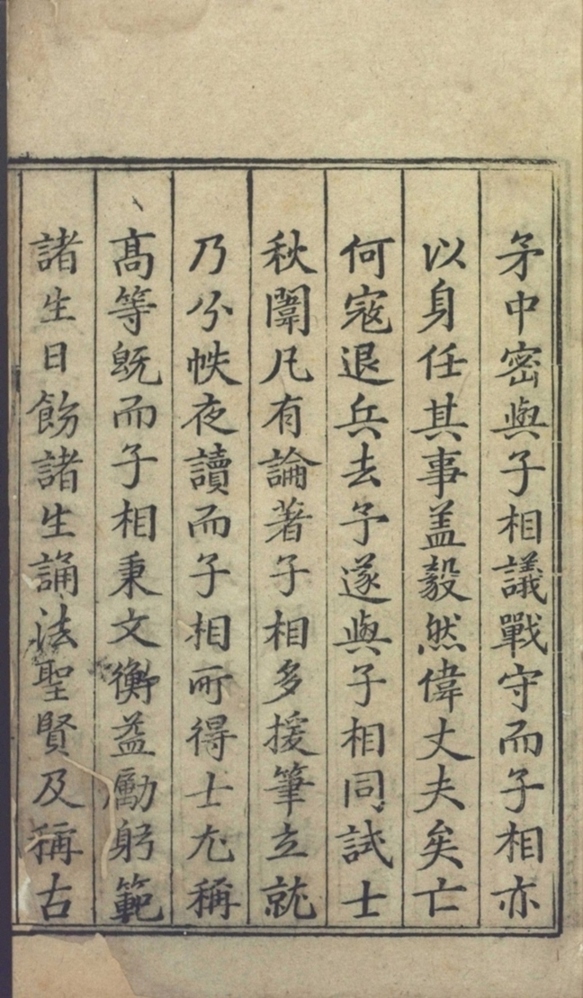 矛中密與子相議戰守而子相亦
以身任其事盖毅然偉丈夫矣亡
何寇退兵去予遂與子相同試士
秋闈凡有論著子相多援筆立就
乃分帙夜讀而子相所得士尤稱
髙等旣而子相秉文衡益勵躬範
諸生日飭諸生誦法聖賢及稱古